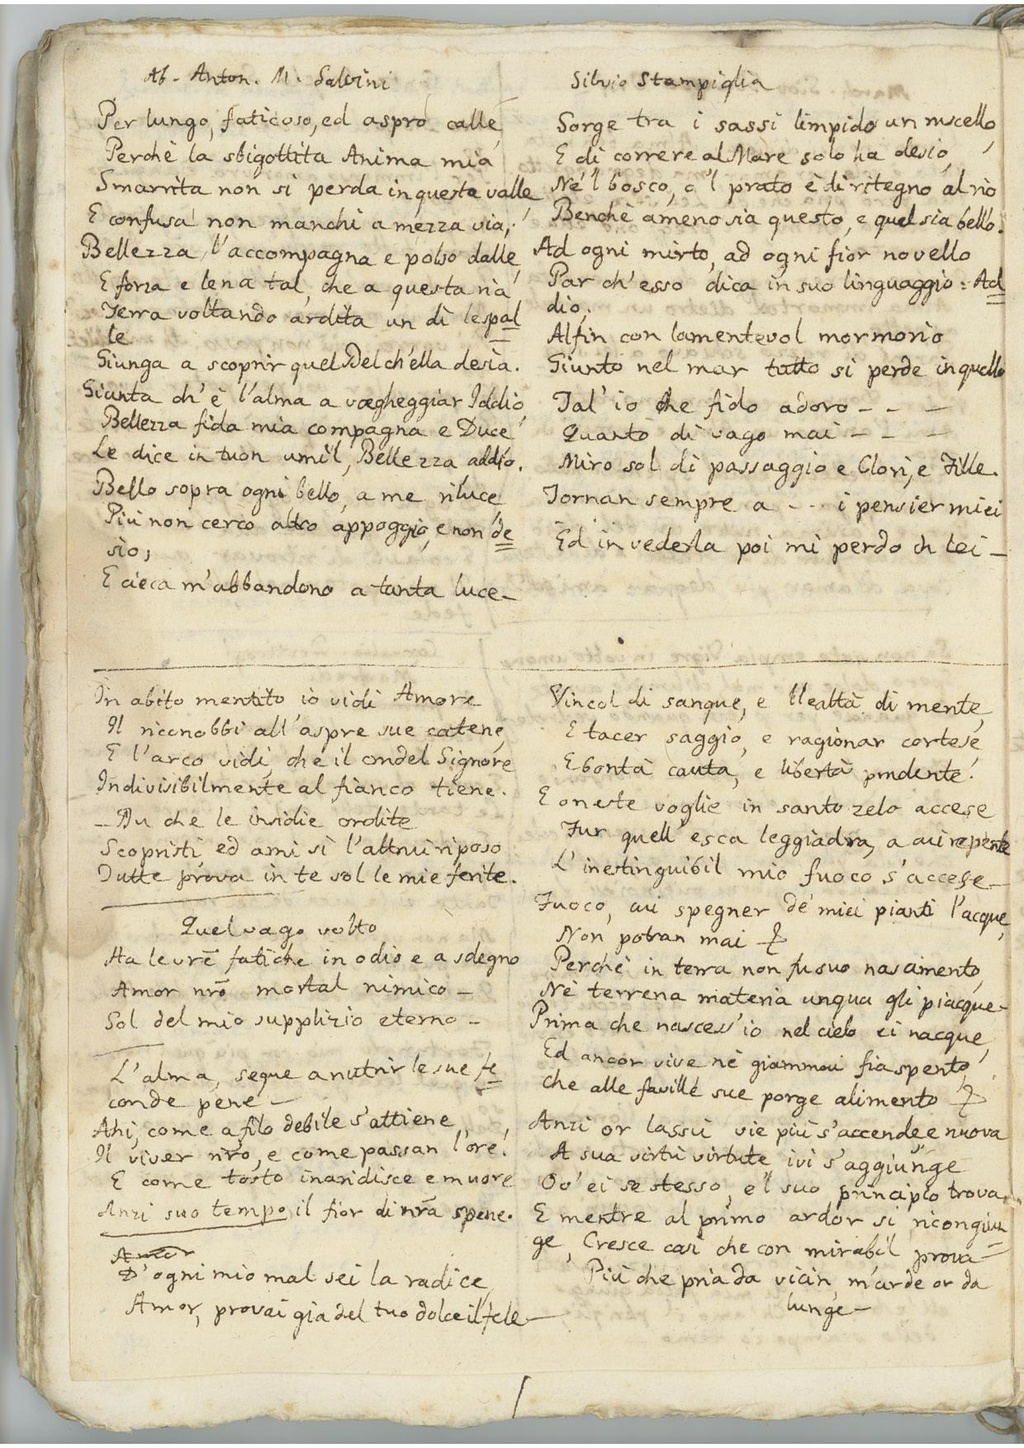 Ab. Anton. M. Salvini
Per lungo, faticoso, ed aspro calle
Perchè la sbigottita Anima mia
Smarrita non si perda in questa valle
E confusa non manchi a mezza via,
Bellezza l'accompagna e polso dalle
E forza e lena tal, che a questa ria
Terra voltando ardita un dì le spal=
le
Giunga a scoprir quel Bel ch'ella desia.
Giunta ch'è l'alma a vagheggiar Iddio
Bellezza fida mia compagna e Duce
Le dice in tuon umil, Bellezza addio.
Bello sopra ogni bello, a me riluce
Più non cerco altro appoggio, e non de=
sio;
E cieca m'abbandono a tanta luce_
In abito mentito io vidi Amore
Il riconobbi all'aspre sue catene
E l'arco vidi, che il crudel Signore
Indivisibilmente al fianco tiene.
_ Tu che le insidie ordite
Scopristi ed ami sì l'altrui riposo
Tutte prova in te sol le mie ferite.
Quel vago volto
Ha le vrẽ fatiche in odio e a sdegno
Amor nrõ mortal nimico _
Sol del mio supplizio eterno _
L'alma, segue a nutrir le sue fe=
conde pene _
Ahi, come a filo debile s'attiene
Il viver nrõ, e come passan l'ore!
E come tosto inaridisce e muore
Anzi suo tempo il fior di nrã spene.
Amor
D'ogni mio mal sei la radice
Amor, provai già del tuo dolce il fele _
Silvio Stampiglia
Sorge tra i sassi limpido un ruscello,
E di correre al Mare solo ha desio,
Nè 'l bosco, o 'l prato è di ritegno al rio
Benchè ameno sia questo, e quel sia bello.
Ad ogni mirto, ad ogni fior novello
Par ch'esso dica in suo linguaggio: Ad=
dio;
Alfin con lamentevol mormorio
Giunto nel mar tutto si perde in quello
Tal' io che fido adoro _ _ _
Quanto di vago mai _ _ _
Miro sol di passaggio e Clori, e Fille.
Tornan sempre a _ .. i pensier miei
Ed in vederla poi mi perdo in lei _
Vincol di sangue, e lealtà di mente
E tacer saggio, e ragionar cortese
E bontà cauta, e libertà prudente.
E oneste voglie in santo zelo accese
Fur quell' esca leggiadra, a cui repente
L'inestinguibil mio fuoco s'accese _
Fuoco, cui spegner de' miei pianti l'acque
Non potran mai
Perchè in terra non fu suo nascimento
Nè terrena materia unqua gli piacque _
Prima che nascess'io nel cielo ei nacque,
Ed ancor vive nè giammai fia spento
Che alle faville sue porge alimento
Anzi or lassù vie più s'accende e nuova
A sua virtù virtute ivi s'aggiunge
Ov' ei se stesso, e 'l suo principio trova.
E mentre al primo ardor si ricongiun=
ge, Cresce così che con mirabil prova
Più che pria da vicin m'arde or da
lunge _